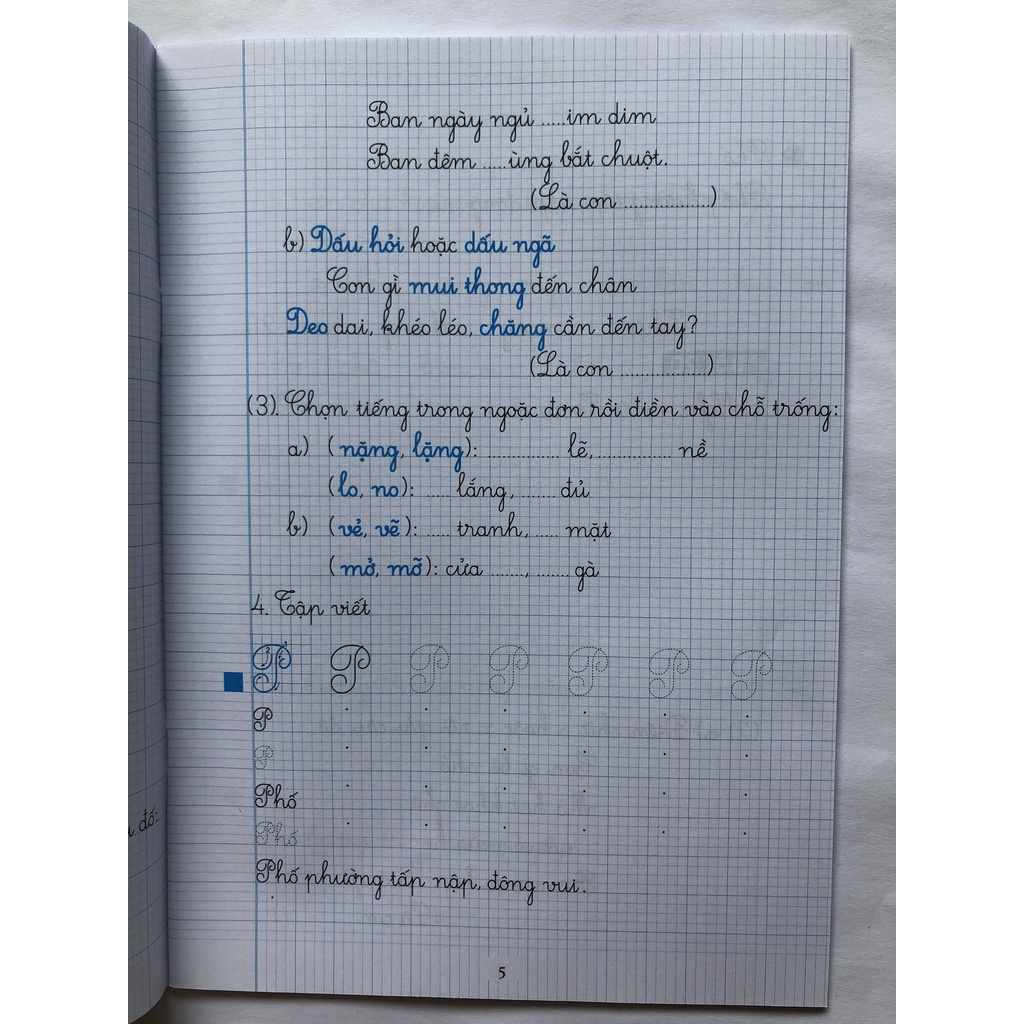 Ban ngày ngủ .....im dim
Ban đêm .....ùng bắt chuột.
(Là con .................)
b) Dấu hỏi hoặc dấu ngã
Con gì mui thong đến chân
Deo dai, khéo léo, chăng cần đến tay?
(Là con .................)
(3). Chọn tiếng trong ngoặc đơn rồi điền vào chỗ trống:
a) (nặng, lặng): ............... lẽ, ............... nề
(lo, no): ..... lắng, ....... đủ
b) (vẻ, vẽ): ..... tranh, ..... mặt
(mở, mỡ): cửa ......., ....... gà
4. Tập viết
P P P P P P P
P
P
Phố
Phố
Phố phường tấp nập, đông vui.
đố:
5